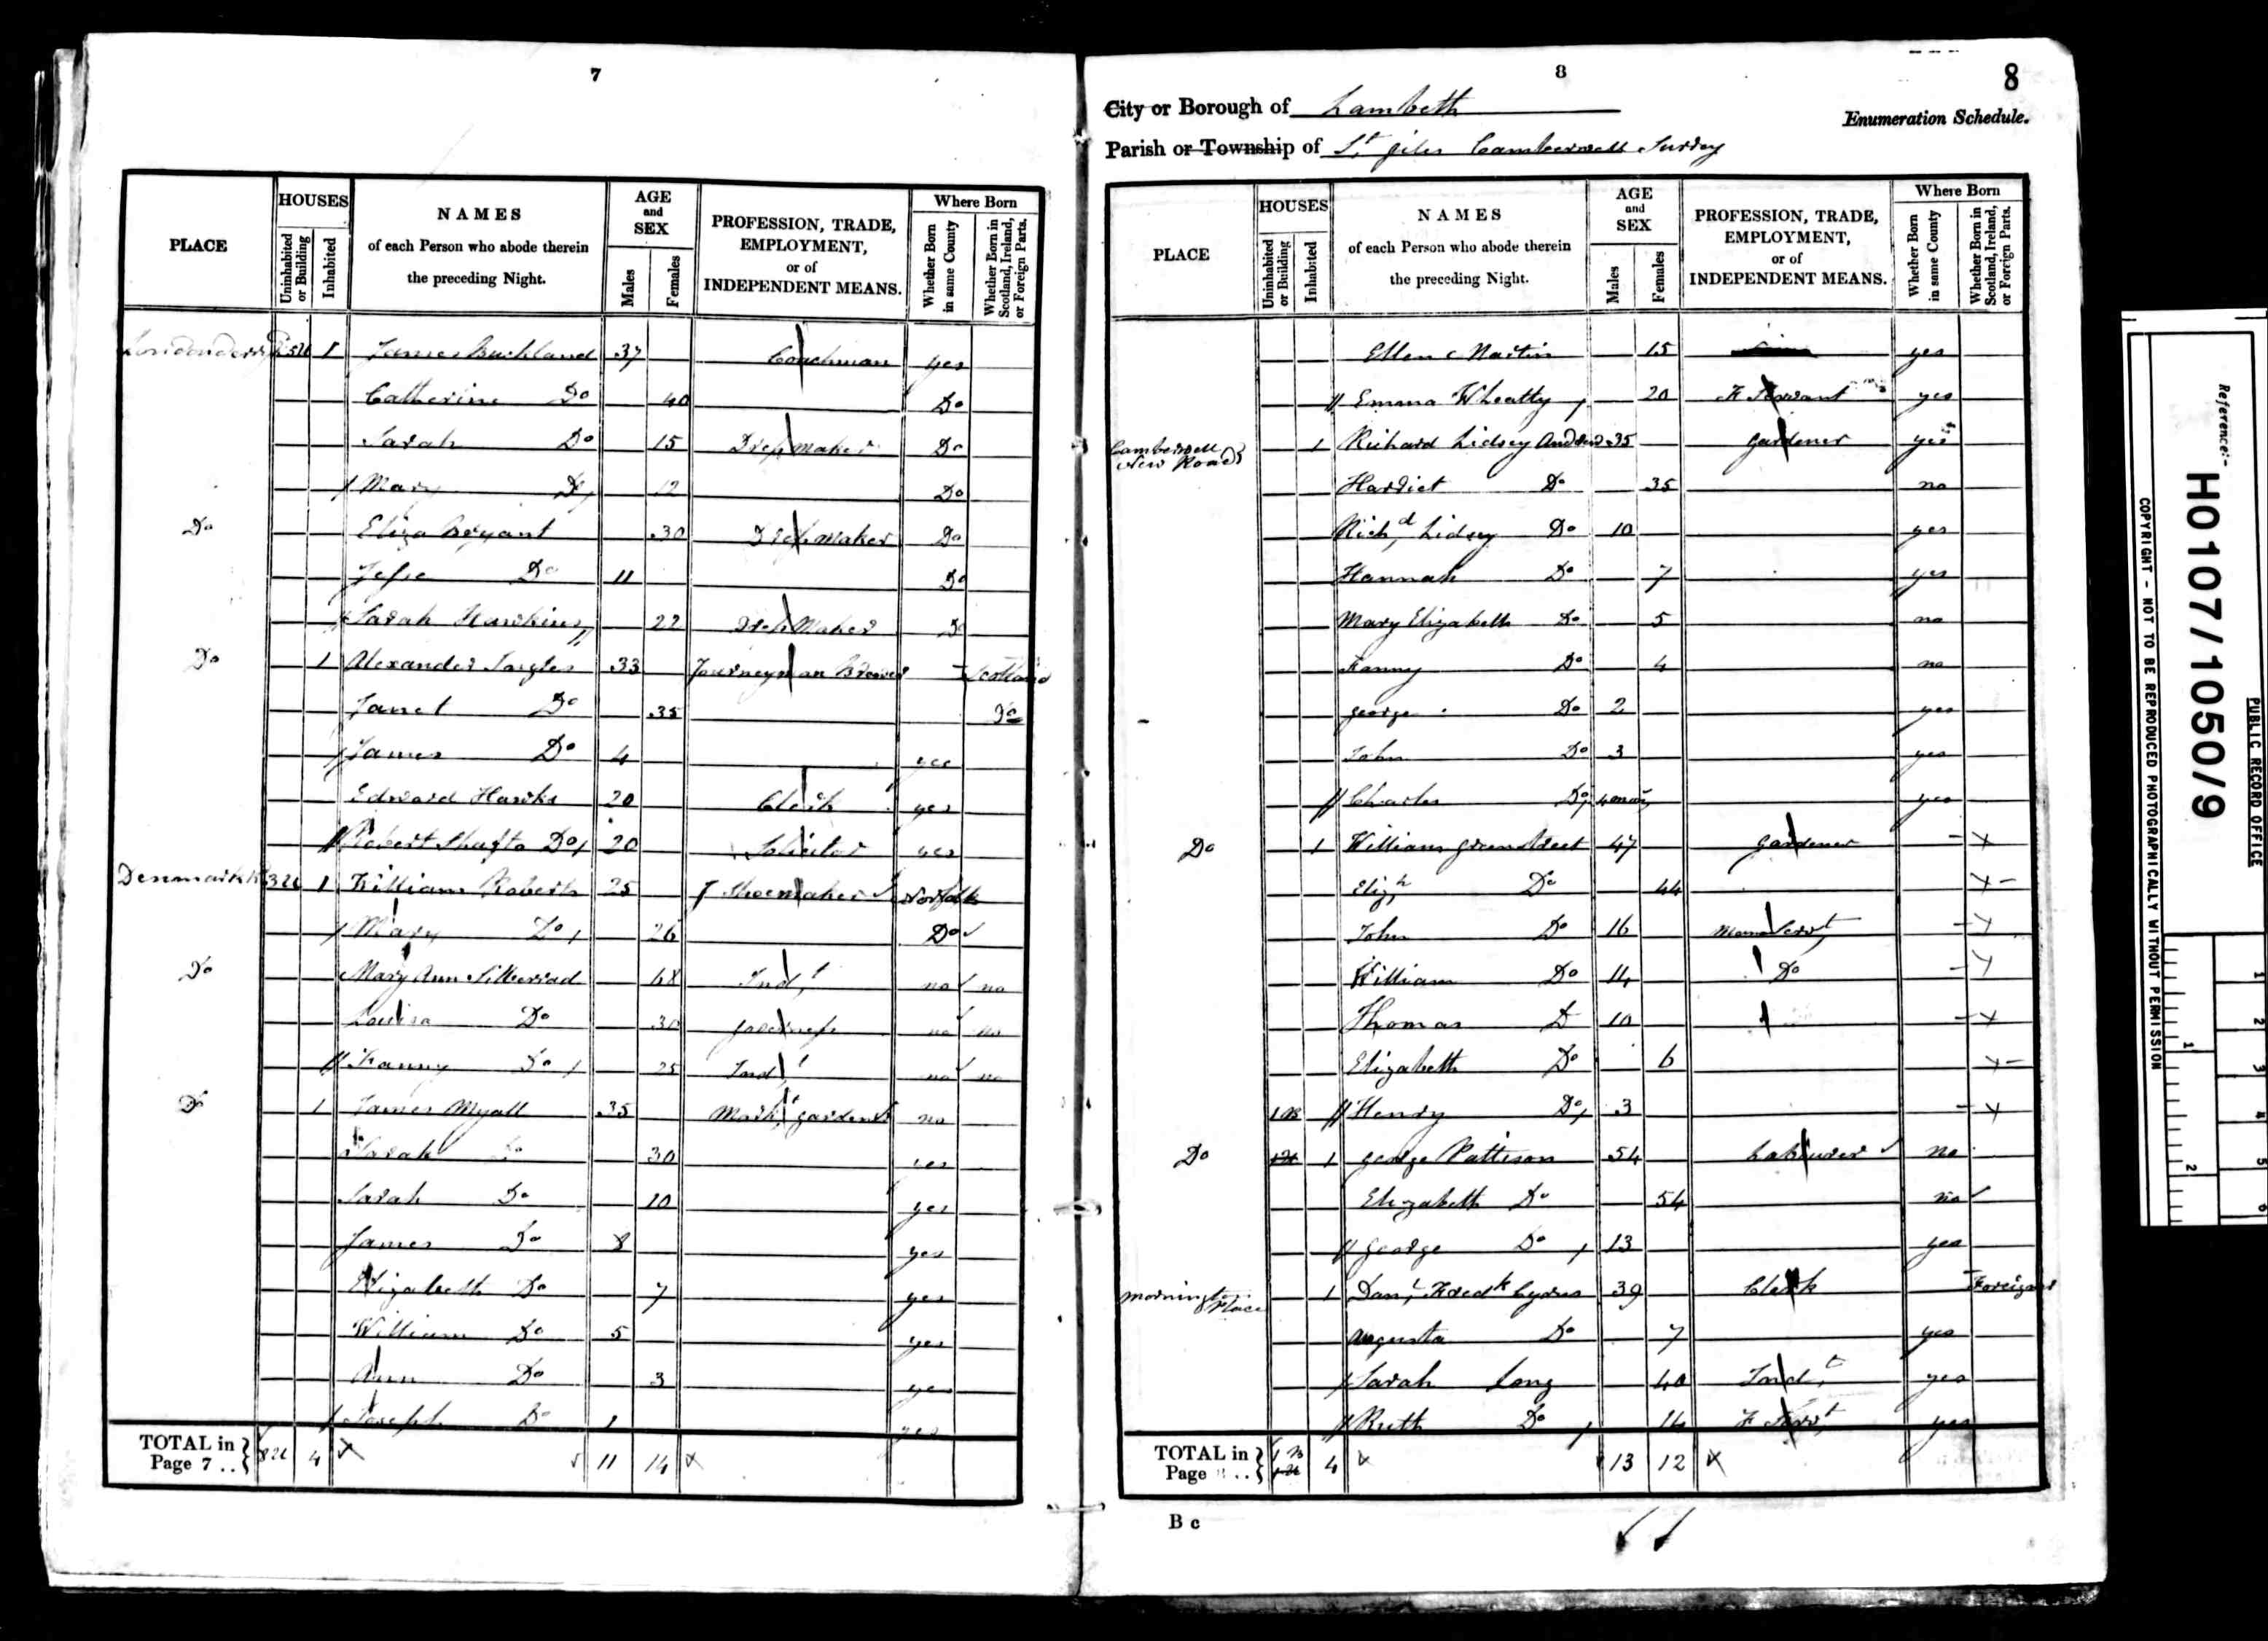 7
PLACE
HOUSES
Uninhabited or Building
Inhabited
NAMES
of each Person who abode therein
the preceding Night.
AGE and SEX
Males
Females
PROFESSION, TRADE, EMPLOYMENT, or of INDEPENDENT MEANS.
Where Born
Whether Born in same County
Whether Born in Scotland, Ireland, or Foreign Parts.
1 James Buckland 37 Coachman yes
Catherine Do 40 Do
Sarah Do 15 Dress Maker Do
Mary Do 12 Do
Do Eliza Bryant 30 Dress Maker Do
Jesse Do 11 Do
Sarah Hawkins 22 Dress Maker Do
Do 1 Alexander 33 Journeyman Brewer Scotland
Janet Do 35 Do
James Do 4 yes
Edward Hawks 20 Clerk yes
Robert Shafto Do 20 Solicitor yes
Denmark 3 U 1 William Roberts 25 J Shoemaker Norfolk
Mary Do 26 Do
Do Mary Ann 68 Ind no no
Louisa Do 30 Governess no no
Fanny Do 25 Ind no no
Do 1 James Myall 35 Mark gardener no
Sarah Do 30 yes
Sarah Do 10 yes
James Do 8 yes
Elizabeth Do 7 yes
William Do 5 yes
Ann Do 3 yes
Joseph Do 1 yes
TOTAL in Page 7 .. } 8 U 4 11 14
8
8
City or Borough of Lambeth
Enumeration Schedule.
Parish or Township of St giles Camberwell Surrey
PLACE
HOUSES
Uninhabited or Building
Inhabited
NAMES
of each Person who abode therein
the preceding Night.
AGE and SEX
Males
Females
PROFESSION, TRADE, EMPLOYMENT, or of INDEPENDENT MEANS.
Where Born
Whether Born in same County
Whether Born in Scotland, Ireland, or Foreign Parts.
Ellen Martin 15 yes
Emma Wheatly 20 F Servant yes
Camberwell New Road 1 Richard Lidsey 35 gardener yes
Harriet Do 35 no
Richd Lidsey Do 10 yes
Hannah Do 7 yes
Mary Elizabeth Do 5 no
Fanny Do 4 no
george Do 2 yes
John Do 3 yes
Charles Do 4 mon yes
Do 1 William greenstreet 47 gardener - x
Elizh Do 44 x -
John Do 16 Servt - x
William Do 14 Do - x
Thomas D 10 - x
Elizabeth Do 6 x -
1 B Henry Do 3 - x
Do 1 george Pattison 54 Labourer no
Elizabeth Do 54 no
george Do 13 yes
mornington Place 1 Danl Fredk 39 Clerk Foreigner
Augusta Do 7 yes
Sarah Long 40 Indt yes
Ruth Do 14 F Servt yes
TOTAL in Page .. } 1 B 4 13 12
B c
Reference:-
HO107/1050/9
PUBLIC RECORD OFFICE
COPYRIGHT - NOT TO BE REPRODUCED PHOTOGRAPHICALLY WITHOUT PERMISSION
1
2
1
2
3
4
5
6